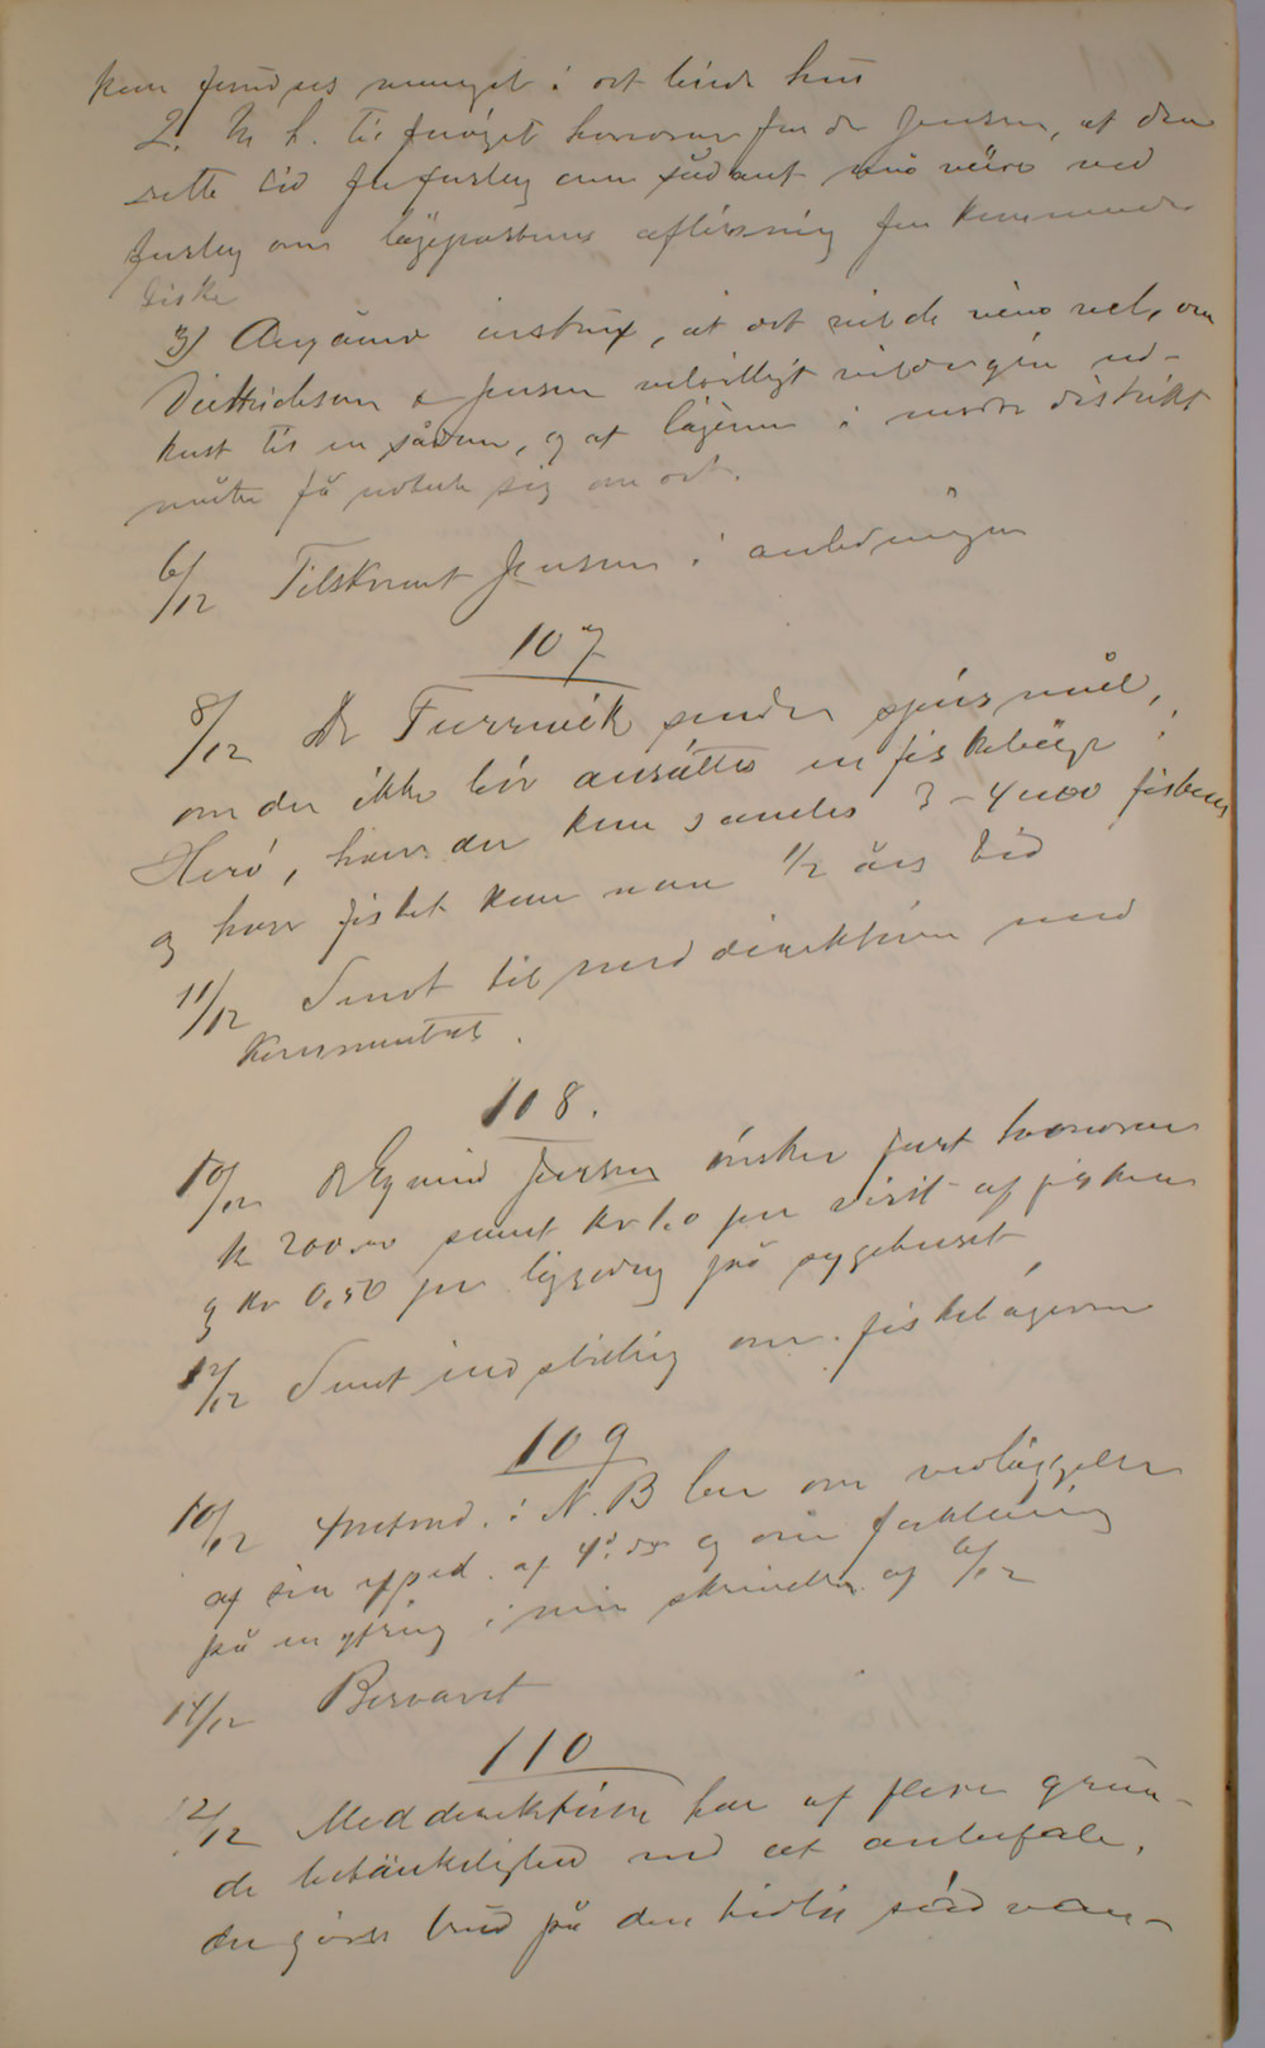 kan  i det leiede hus
2. M. h. til forøget honorar for dr Jensen, at den
rette tid for forslag om sådant må være ved
forslag om lægepostens aflønning for kommende
fiske
3) Angående instrux, at det vilde være vel, om
Diettrichson & Jensen velvilligt vilde gøre ud-
kast til en sådan, og at lægerne i nordre distrikt
måtte få udtale sig om det.
6/12 Tilskrevet Jensen i anledningen
107
8/12 Dr  sender spørsmål,
om der ikke bør ansættes en fiskelæge i
Herø, hvor der kan samles 3-4000 fiskere
og hvor fisket kan vare 1/2 års tid
11/12 Sendt til meddirektøren med
kommentar.
108.
10/12 Dr Eyvind Jensen ønsker fast honorar
kr 200.00 samt kr 1.0 per visit af fiskere
og kr 0,50 per liggedag på sygehuset
12/12 Sendt indstilling om fiskelægerne
109
10/12 Amtmd. i N. B ber om vedlæggelse
af sin exped. af 4. ds og om forklaring
på en ytring i min skrivelse af 6/12
14/12 Besvaret
110
12/12 Meddirektøren har af flere grun-
de betænkelighed ved at anbefale,
der gøres brud på den hidtil sædvan-